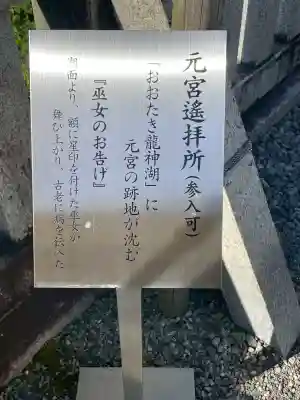 元宮遙拝所（参入可）
「おおたき龍神湖」に
元宮の跡地が沈む
『巫女のお告げ』
湖面より、額に星印を付けた巫女が
舞い上がり、古老に病を伝えた